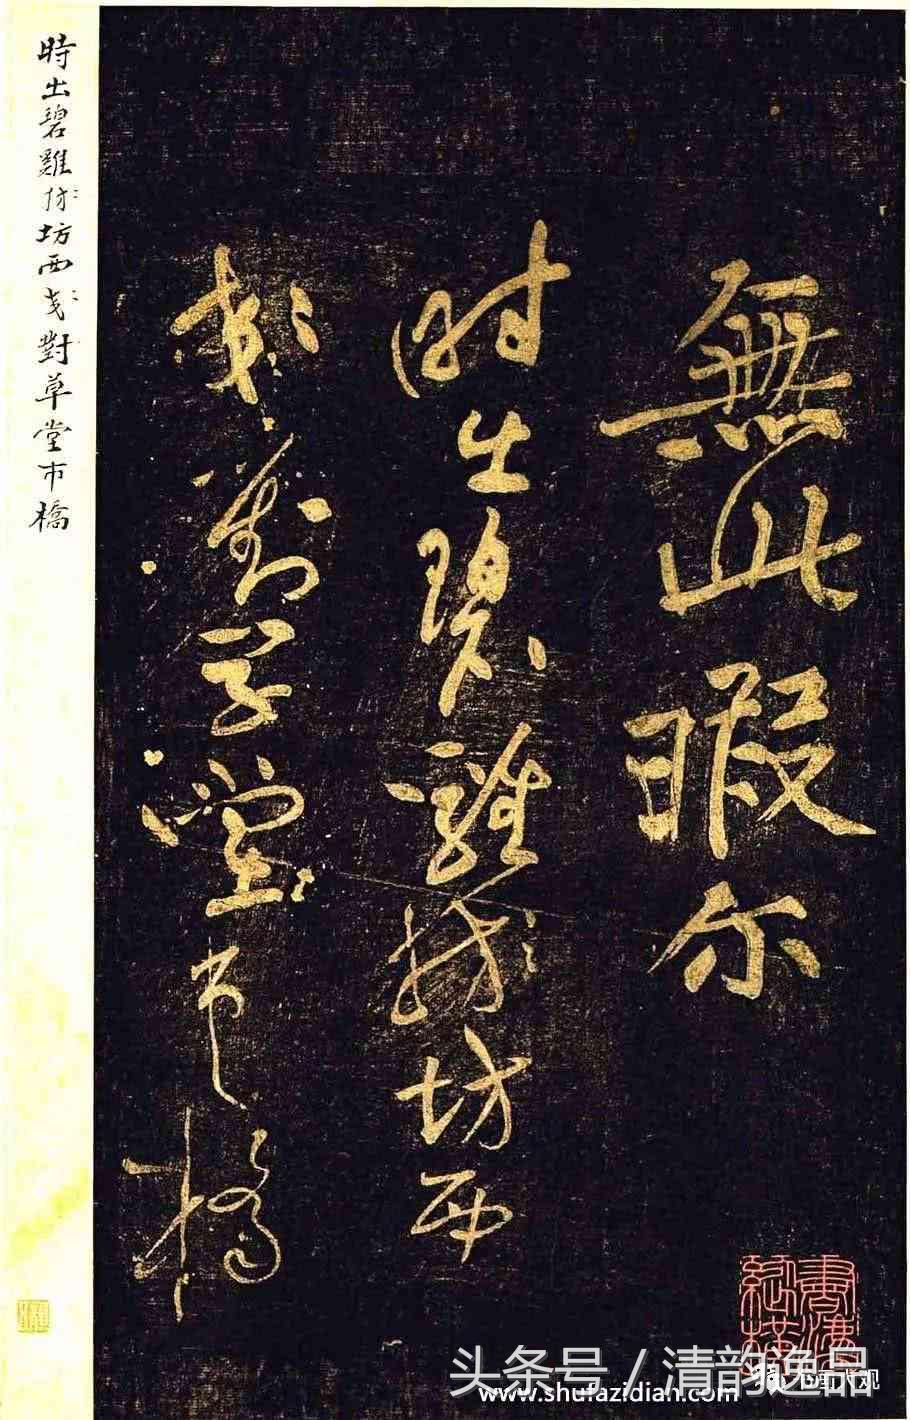 無此暇尔
時出碧雞坊西
對草堂市橋
時出碧雞坊西對草堂市橋
头条号 / 清韵逸品
www.shufazidian.com